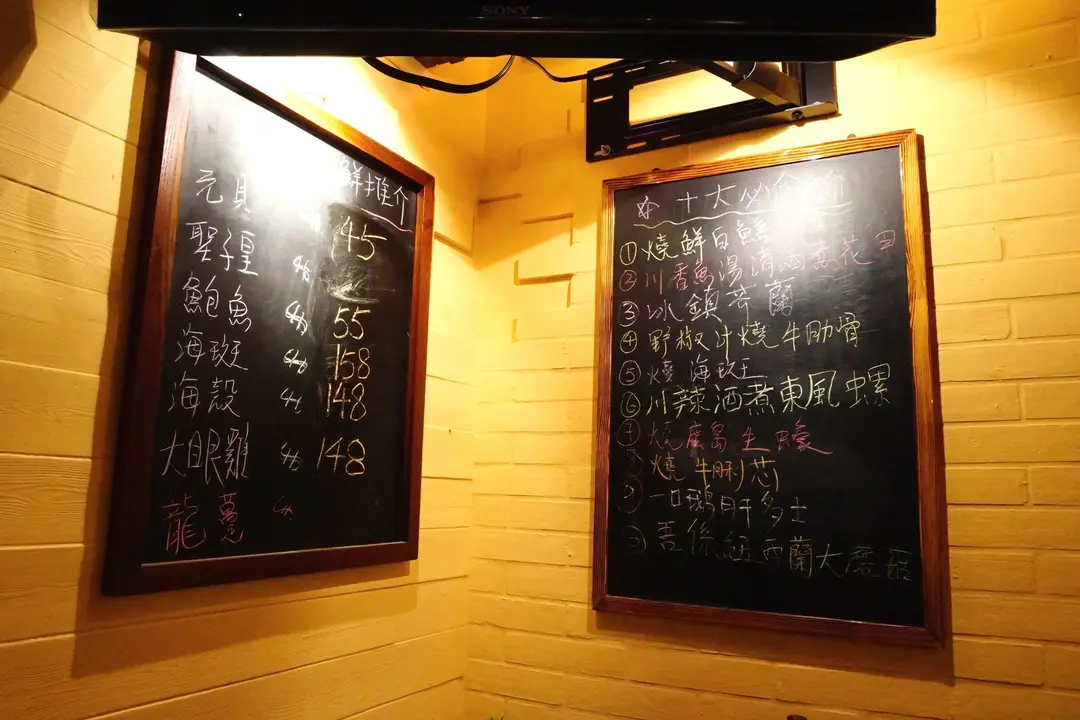 SONY
鮮推介
元貝 45
聖子皇
鮑魚 55
海斑 158
海殼 148
大眼雞 148
龍躉
十大必食
①燒鮮白鱔
②川香魚湯清酒煮花甲
③冰鎮芥蘭
④野椒汁燒牛肋骨
⑤燒海斑
⑥川辣酒煮東風螺
⑦燒廣島生蠔
燒牛脷芯
一口鵝肝多士
吾係紐西蘭大